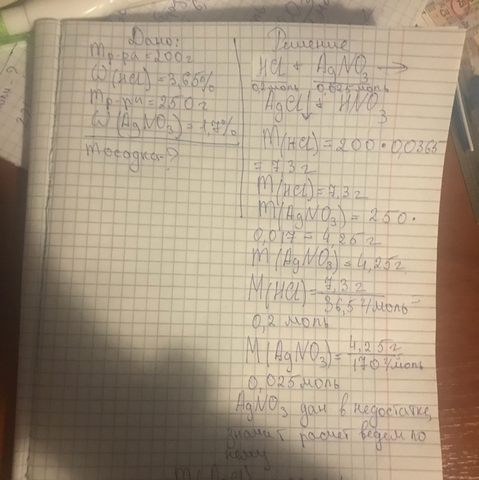 Дано:
mр-ра=200г
W(HCl)=3,65%
mр-ра=250г
W(AgNO3)=1,7%
mосадка-?
Решение
HCl + AgNO3 →
0,2 моль 0,025 моль
AgCl↓ + HNO3
m(HCl)=200·0,0365
=7,3г
m(HCl)=7,3г
m(AgNO3)=250·
0,017=4,25г
m(AgNO3)=4,25г
M(HCl)=7,3г/36,5г/моль=
0,2 моль
M(AgNO3)=4,25г/170г/моль
0,025моль
AgNO3 дан в недостатке,
значит расчет ведем по
нему